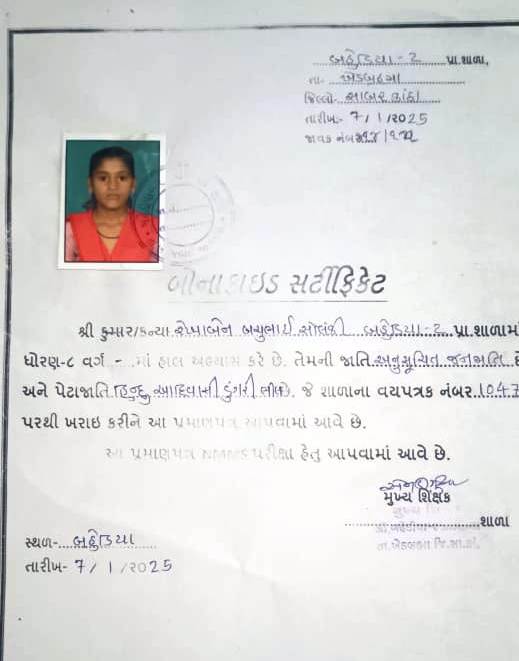 બહેડિયા - 2 પ્રા.શાળા,
તા- ખેડબ્રહ્મા
જિલ્લો- સાબરકાંઠા
તારીખ:- 7/1/2025
જાવક નંબર
બોનાફાઇડ સર્ટીફિકેટ
શ્રી કુમાર/કન્યા સોલંકી બહેડિયા-2 પ્રા.શાળામાં
ધોરણ-૮ વર્ગ - માં હાલ અભ્યાસ કરે છે. તેમની જાતિ અનુસૂચિત જનજાતિ છે
અને પેટાજાતિ હિન્દુ આદિવાસી ડુંગરી ભીલ છે. જે શાળાના વયપત્રક નંબર 1047
પરથી ખરાઇ કરીને આ પ્રમાણપત્ર આપવામાં આવે છે.
આ પ્રમાણપત્ર NMMS પરીક્ષા હેતુ આપવામાં આવે છે.
મુખ્ય શિક્ષક
શાળા
સ્થળ- બહેડિયા
તારીખ- 7/1/2025